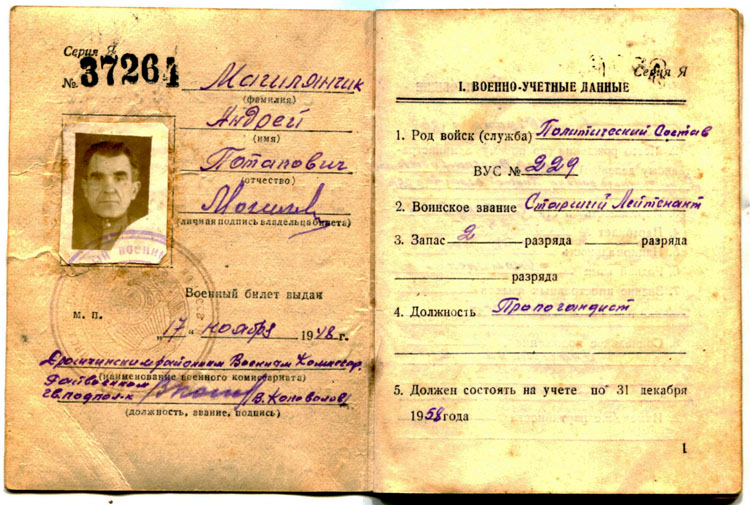 Серия Я
№ 37261
Магилянчик
(фамилия)
Андрей
(имя)
Потапович
(отчество)
(личная подпись владельца билета)
Военный билет выдан
М. П.
„17“ ноября 1948 г.
Дрогичинским районным Военным Комиссар.
(наименование военного комиссариата)
Райвоенком
Гв. подпол-к В. Коновалов
(должность, звание, подпись)
Серия Я
I. ВОЕННО-УЧЕТНЫЕ ДАННЫЕ
1. Род войск (служба) Политический Состав
ВУС № 229
2. Воинское звание Старший Лейтенант
3. Запас 2 разряда разряда
разряда
4. Должность Пропогандист
5. Должен состоять на учете по 31 декабря
1958 года
1